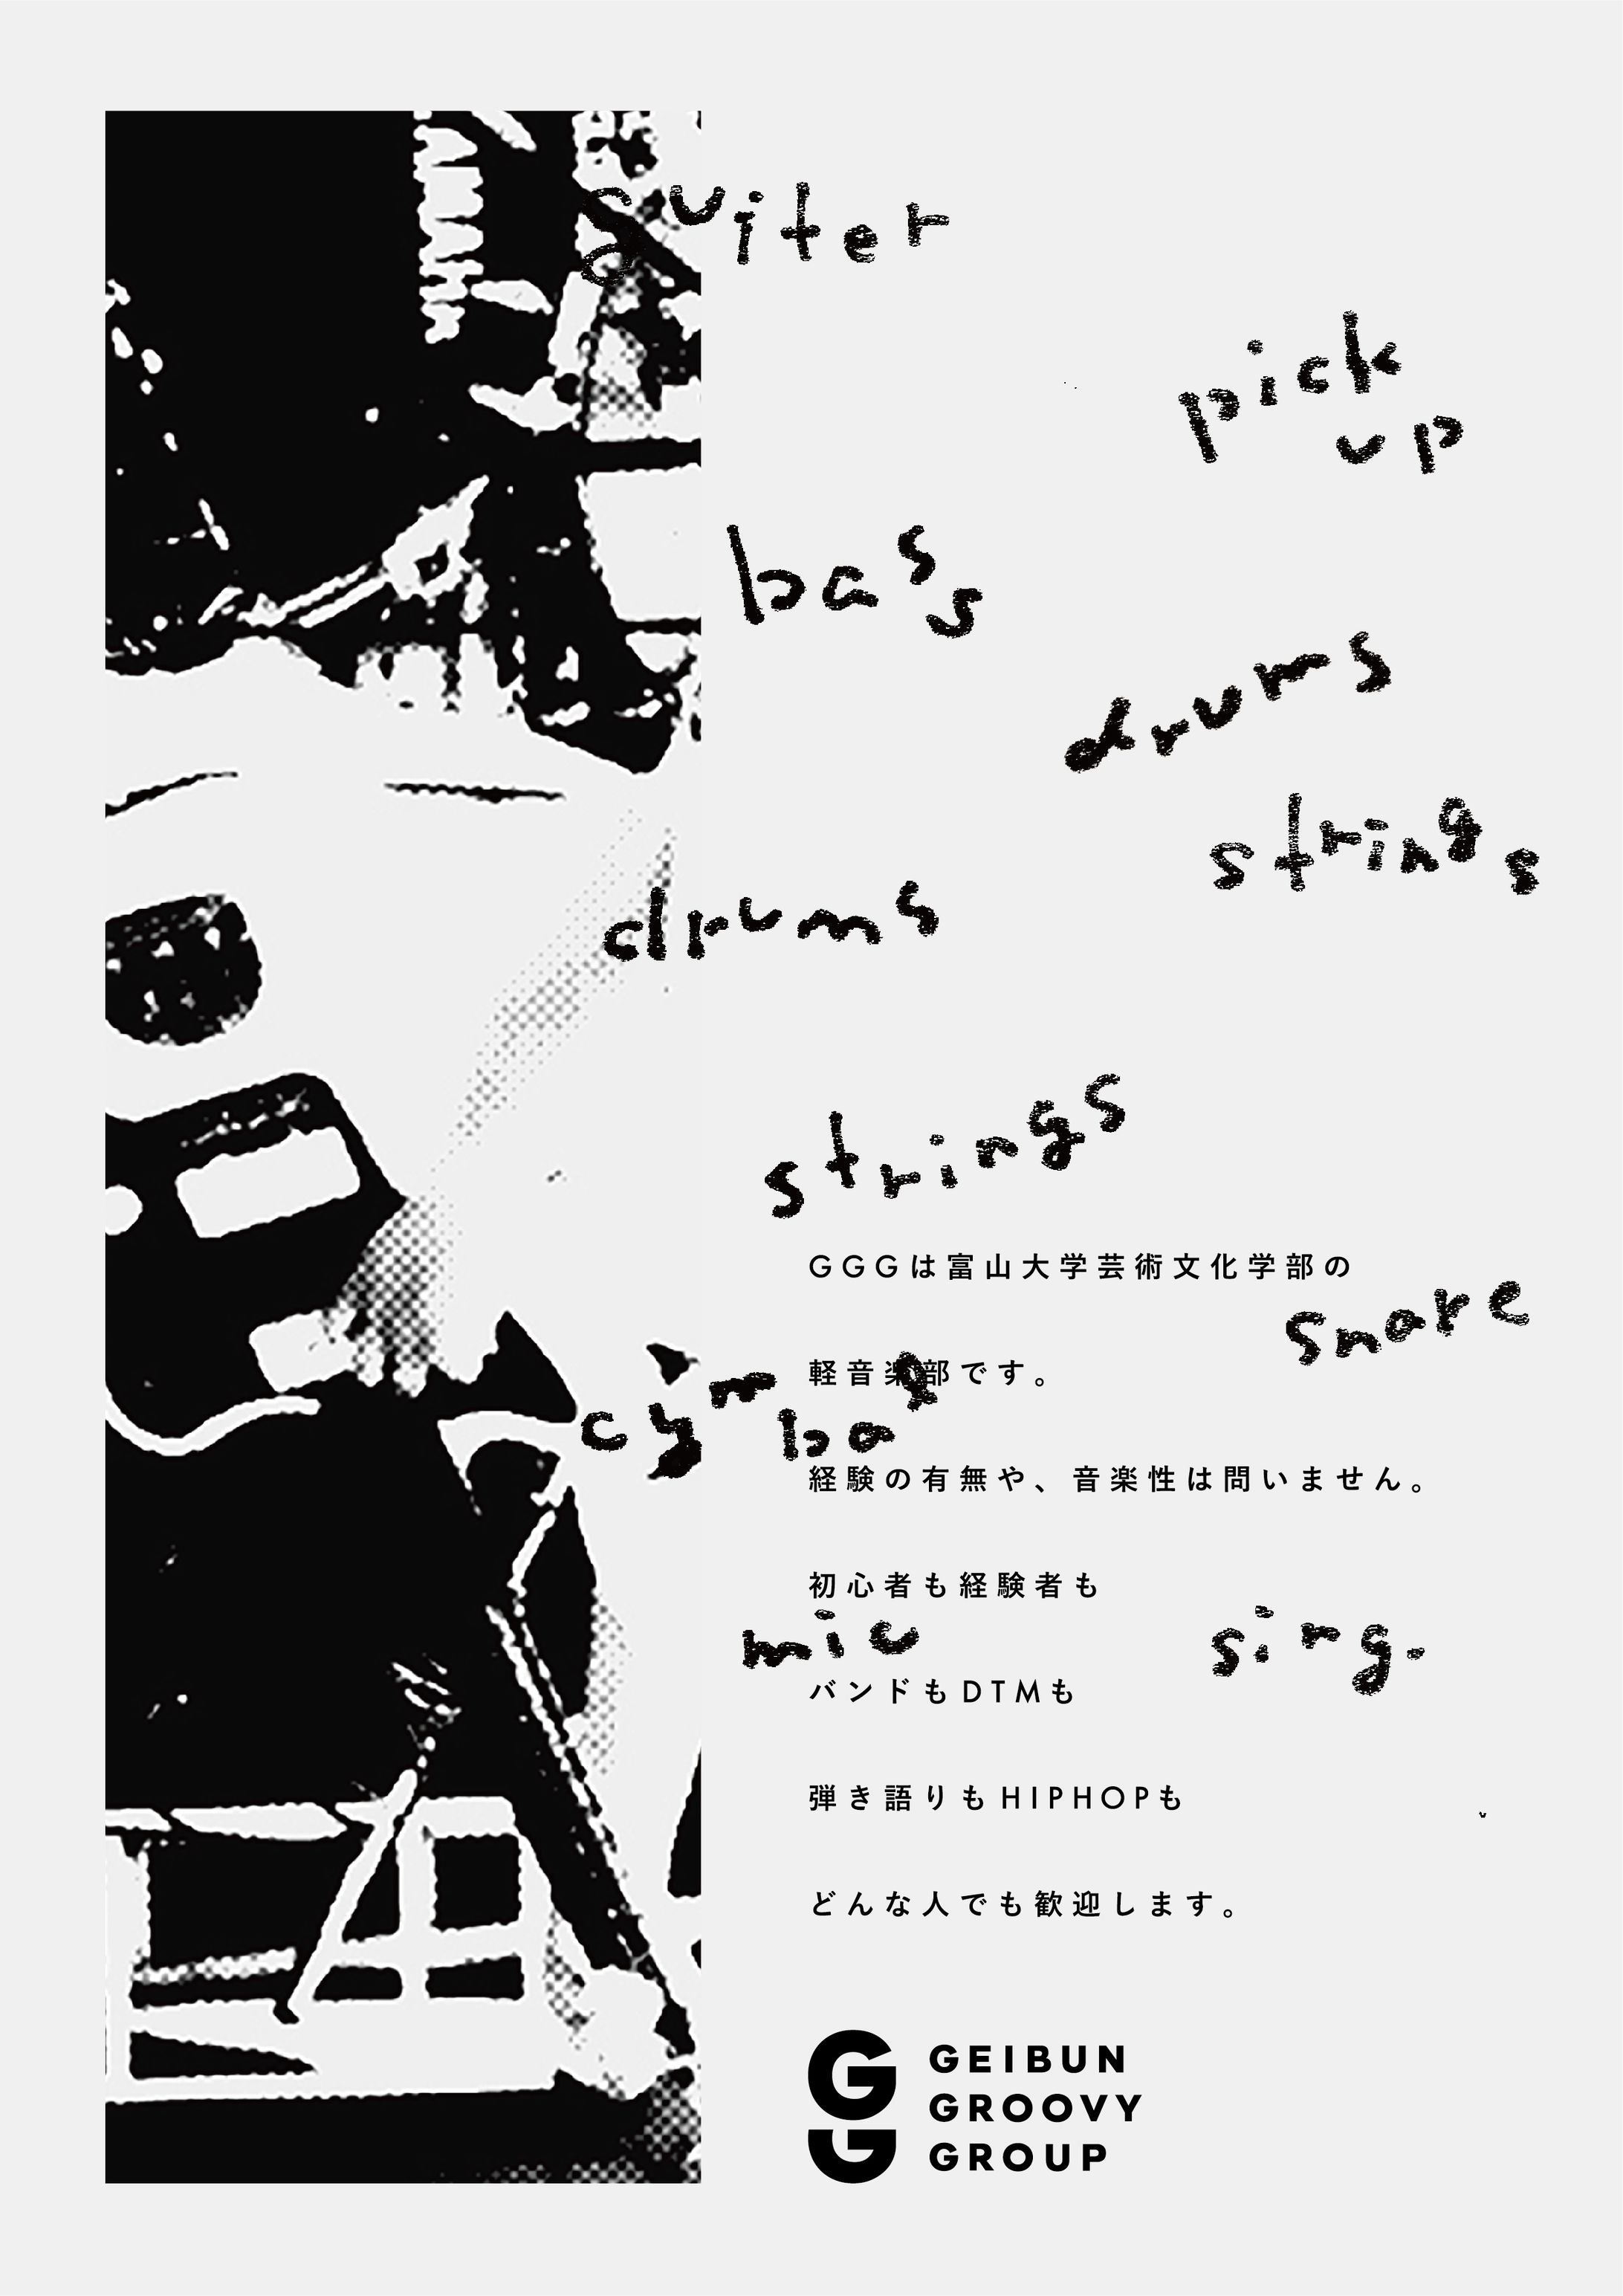 guiter
pick
up
bass
drums
strings
drums
strings
GGGは富山大学芸術文化学部の
snare
軽音楽部です。
cymbal
経験の有無や、音楽性は問いません。
初心者も経験者も
mic
sing.
バンドもDTMも
弾き語りもHIPHOPも
どんな人でも歓迎します。
GEIBUN
GROOVY
GROUP